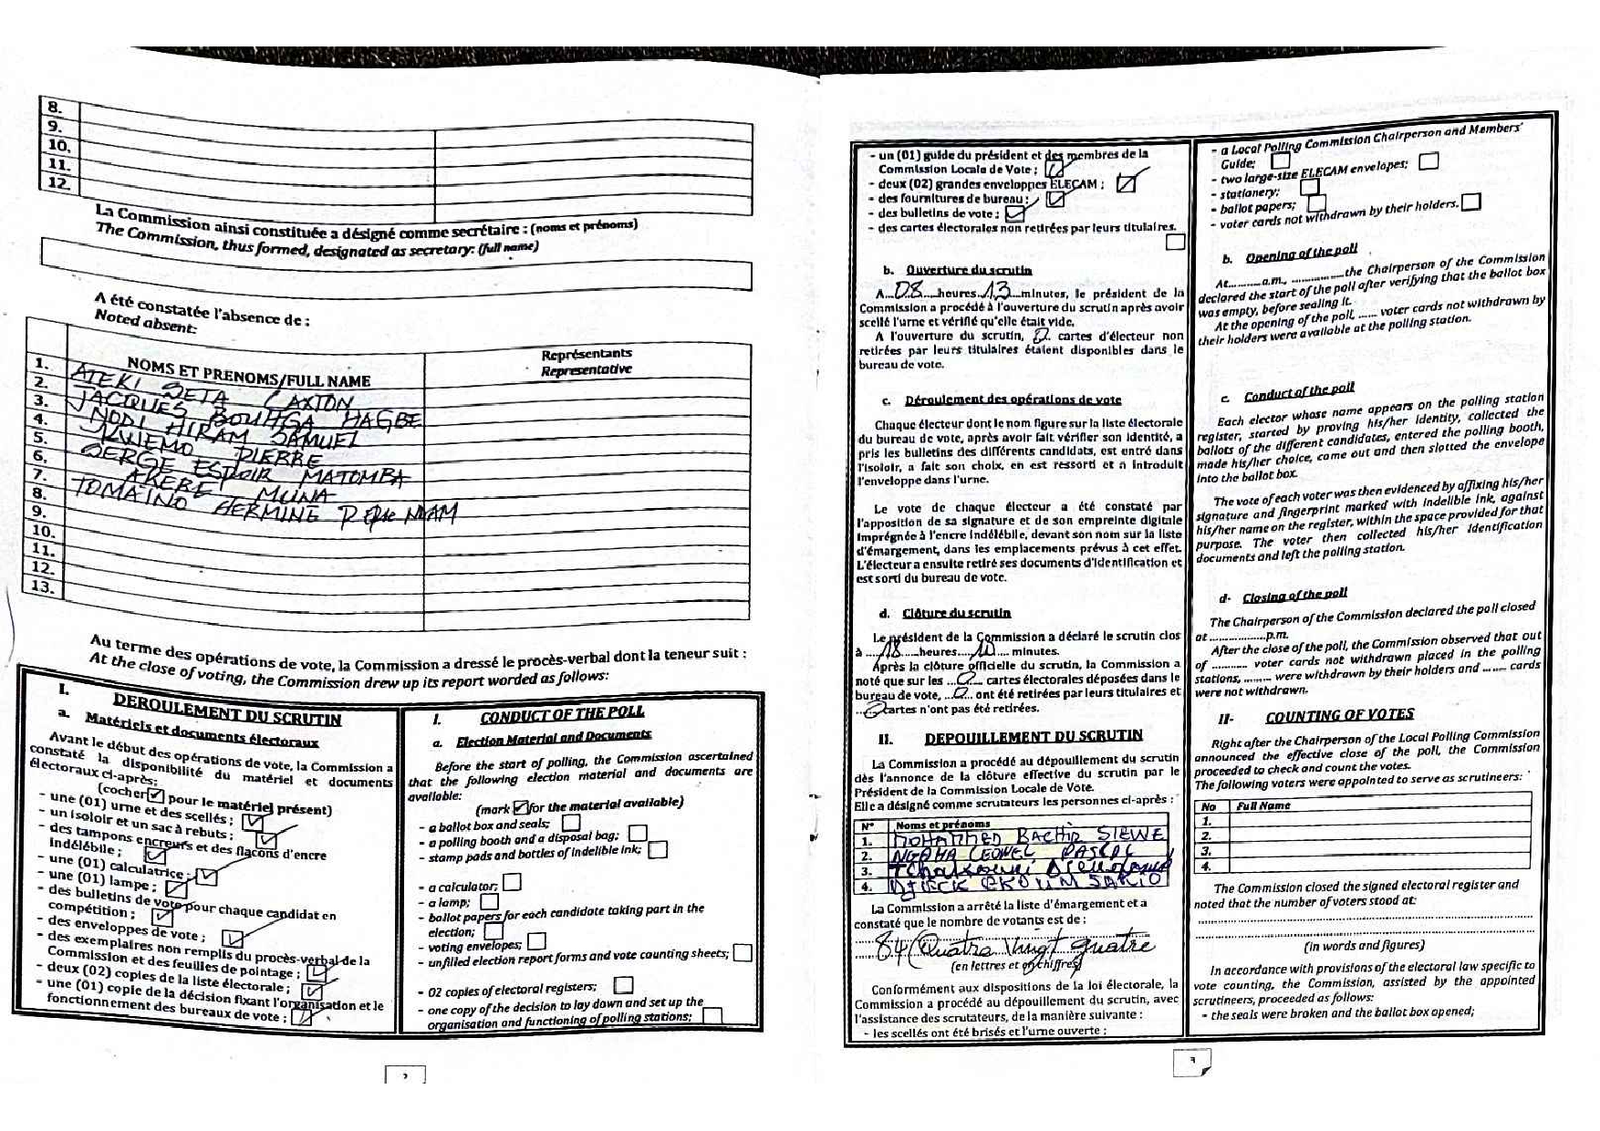 8.
9.
10.
11.
12.
La Commission ainsi constituée a désigné comme secrétaire : (noms et prénoms)
The Commission, thus formed, designated as secretary: (full name)
A été constatée l'absence de :
Noted absent:
NOMS ET PRENOMS/FULL NAME
Représentants
Representative
1. ATEKI SETA CAXTON
2. JACQUES BOUHGA HAGBE
3. NDDI HIRAM SAMUEL
4. KWEMO PIERRE
5. SERGE ESPOIR MATOMBA
6. AKERE MUNA
7. TOMAINO HERMINE P NDAM
8.
9.
10.
11.
12.
13.
Au terme des opérations de vote, la Commission a dressé le procès-verbal dont la teneur suit :
At the close of voting, the Commission drew up its report worded as follows:
I. DEROULEMENT DU SCRUTIN
a. Matériels et documents électoraux
Avant le début des opérations de vote, la Commission a
constaté la disponibilité du matériel et documents
électoraux ci-après:
(cocher ☑ pour le matériel présent)
- une (01) urne et des scellés ; ☑
- un isoloir et un sac à rebuts ; ☑
- des tampons encreurs et des flacons d'encre
indélébile ; ☑
- une (01) calculatrice ; ☑
- une (01) lampe ; ☑
- des bulletins de vote pour chaque candidat en
compétition ; ☑
- des enveloppes de vote ; ☑
- des exemplaires non remplis du procès-verbal de la
Commission et des feuilles de pointage ; ☑
- deux (02) copies de la liste électorale ; ☑
- une (01) copie de la décision fixant l'organisation et le
fonctionnement des bureaux de vote ; ☑
I. CONDUCT OF THE POLL
a. Election Material and Documents
Before the start of polling, the Commission ascertained
that the following election material and documents are
available:
(mark ☑ for the material available)
- a ballot box and seals; ☐
- a polling booth and a disposal bag; ☐
- stamp pads and bottles of indelible ink; ☐
- a calculator; ☐
- a lamp; ☐
- ballot papers for each candidate taking part in the
election; ☐
- voting envelopes; ☐
- unfilled election report forms and vote counting sheets; ☐
- 02 copies of electoral registers; ☐
- one copy of the decision to lay down and set up the
organisation and functioning of polling stations; ☐
2
- un (01) guide du président et des membres de la
Commission Locale de Vote ; ☑
- deux (02) grandes enveloppes ELECAM ; ☑
- des fournitures de bureau ; ☑
- des bulletins de vote ; ☑
- des cartes électorales non retirées par leurs titulaires.
☐
b. Ouverture du scrutin
A...08...heures...13...minutes, le président de la
Commission a procédé à l'ouverture du scrutin après avoir
scellé l'urne et vérifié qu'elle était vide.
A l'ouverture du scrutin, 0 cartes d'électeur non
retirées par leurs titulaires étaient disponibles dans le
bureau de vote.
c. Déroulement des opérations de vote
Chaque électeur dont le nom figure sur la liste électorale
du bureau de vote, après avoir fait vérifier son identité, a
pris les bulletins des différents candidats, est entré dans
l'isoloir, a fait son choix, en est ressorti et a introduit
l'enveloppe dans l'urne.
Le vote de chaque électeur a été constaté par
l'apposition de sa signature et de son empreinte digitale
imprégnée à l'encre indélébile, devant son nom sur la liste
d'émargement, dans les emplacements prévus à cet effet.
L'électeur a ensuite retiré ses documents d'identification et
est sorti du bureau de vote.
d. Clôture du scrutin
Le président de la Commission a déclaré le scrutin clos
à ...18...heures...10... minutes.
Après la clôture officielle du scrutin, la Commission a
noté que sur les ...0... cartes électorales déposées dans le
bureau de vote, ...0... ont été retirées par leurs titulaires et
...0 cartes n'ont pas été retirées.
II. DEPOUILLEMENT DU SCRUTIN
La Commission a procédé au dépouillement du scrutin
dès l'annonce de la clôture effective du scrutin par le
Président de la Commission Locale de Vote.
Elle a désigné comme scrutateurs les personnes ci-après :
N° Noms et prénoms
1. MOHAMMED BACHIR SIEWE
2. NGAHA LEONEL PASCAL
3.
4. SAKIO
La Commission a arrêté la liste d'émargement et a
constaté que le nombre de votants est de :
84 (Quatre Vingt quatre
(en lettres et en chiffres)
Conformément aux dispositions de la loi électorale, la
Commission a procédé au dépouillement du scrutin, avec
l'assistance des scrutateurs, de la manière suivante :
- les scellés ont été brisés et l'urne ouverte ;
- a Local Polling Commission Chairperson and Members'
Guide; ☐
- two large-size ELECAM envelopes; ☐
- stationery; ☐
- ballot papers; ☐
- voter cards not withdrawn by their holders. ☐
b. Opening of the poll
At..........a.m, ...............the Chairperson of the Commission
declared the start of the poll after verifying that the ballot box
was empty, before sealing it.
At the opening of the poll, ...... voter cards not withdrawn by
their holders were available at the polling station.
c. Conduct of the poll
Each elector whose name appears on the polling station
register, started by proving his/her identity, collected the
ballots of the different candidates, entered the polling booth,
made his/her choice, came out and then slotted the envelope
into the ballot box.
The vote of each voter was then evidenced by affixing his/her
signature and fingerprint marked with indelible ink, against
his/her name on the register, within the space provided for that
purpose. The voter then collected his/her identification
documents and left the polling station.
d- Closing of the poll
The Chairperson of the Commission declared the poll closed
at ..................p.m.
After the close of the poll, the Commission observed that out
of ........... voter cards not withdrawn placed in the polling
stations, ......... were withdrawn by their holders and ....... cards
were not withdrawn.
II- COUNTING OF VOTES
Right after the Chairperson of the Local Polling Commission
announced the effective close of the poll, the Commission
proceeded to check and count the votes.
The following voters were appointed to serve as scrutineers:
No Full Name
1.
2.
3.
4.
The Commission closed the signed electoral register and
noted that the number of voters stood at:
(in words and figures)
In accordance with provisions of the electoral law specific to
vote counting, the Commission, assisted by the appointed
scrutineers, proceeded as follows:
- the seals were broken and the ballot box opened;
3